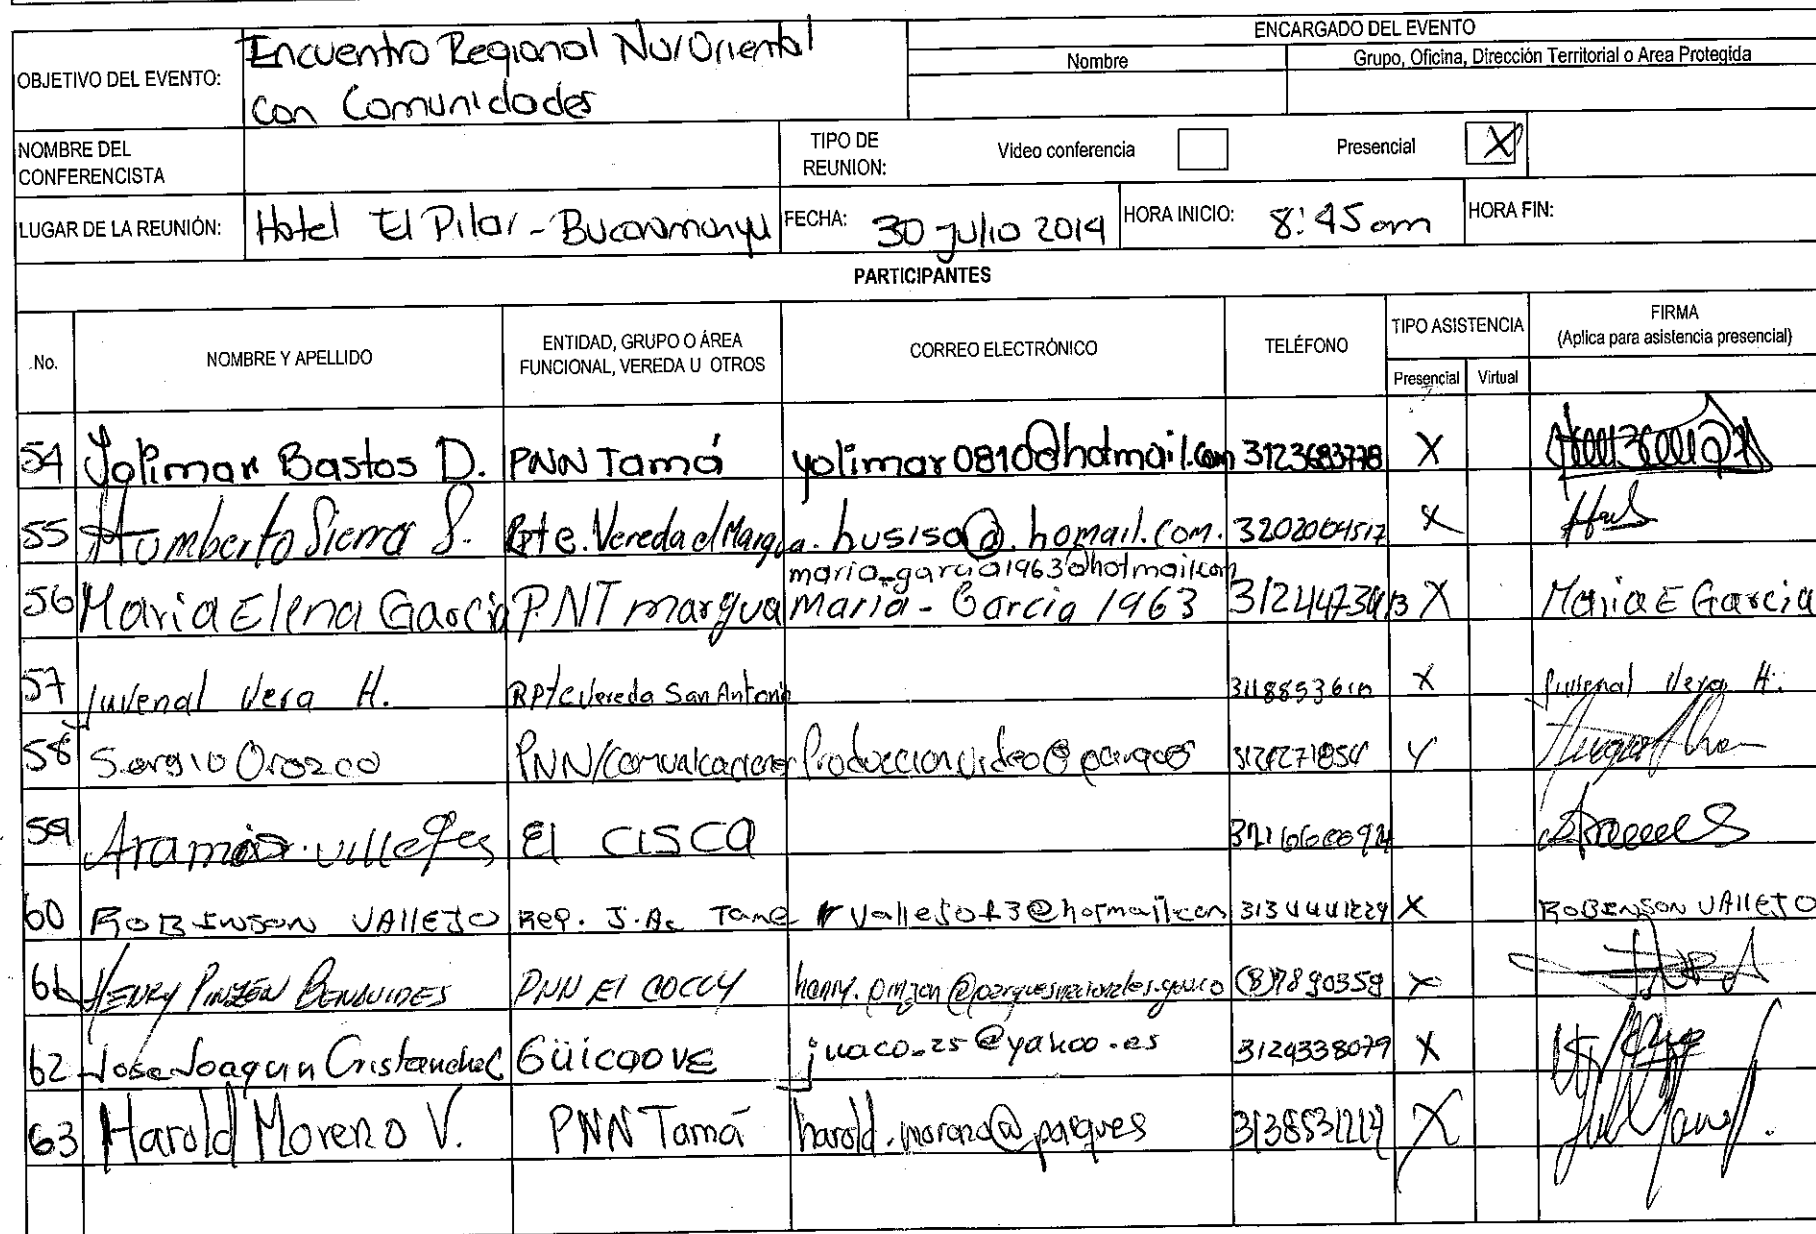 ENCARGADO DEL EVENTO
OBJETIVO DEL EVENTO: Encuentro Regional NorOriental con Comunidades
Nombre Grupo, Oficina, Dirección Territorial o Area Protegida
NOMBRE DEL CONFERENCISTA TIPO DE REUNION: Video conferencia Presencial X
LUGAR DE LA REUNIÓN: Hotel El Pilar - Bucaramanga FECHA: 30 julio 2014 HORA INICIO: 8:45 am HORA FIN:
PARTICIPANTES
No. NOMBRE Y APELLIDO ENTIDAD, GRUPO O ÁREA FUNCIONAL, VEREDA U OTROS CORREO ELECTRÓNICO TELÉFONO TIPO ASISTENCIA FIRMA (Aplica para asistencia presencial)
Presencial Virtual
54 Yolimar Bastos D. PNN Tamá yolimar0810@hotmail.com 3123683778 X
55 Humberto Sierra S. Rpte. Vereda el Margua. husisa@.homail.com. X
maria_garcia1963@hotmail.com
56 Maria Elena Garcia PNT margua Maria - Garcia 1963 X Maria E Garcia
57 Juvenal Vera H. RPte Vereda San Antonio X Juvenal Vera H.
58 Sergio Orozco PNN/Comunicaciones Produccionvideo@parques X
59 Aramis El CISCA
60 ROBINSON VALLEJO Rep. J.Ac Tame 3134441224 X ROBINSON VALLEJO
61 HENRY PINZÓN BENAVIDES PNN El COCUY henry.pinzon@parquesnacionales.gov.co (8)7890359 X
62 Jose Joaquin Cristancho C GÜICOOVE juaco_25@yahoo.es 3124338079 X
63 Harold Moreno V. PNN Tamá harold.moreno@parques X